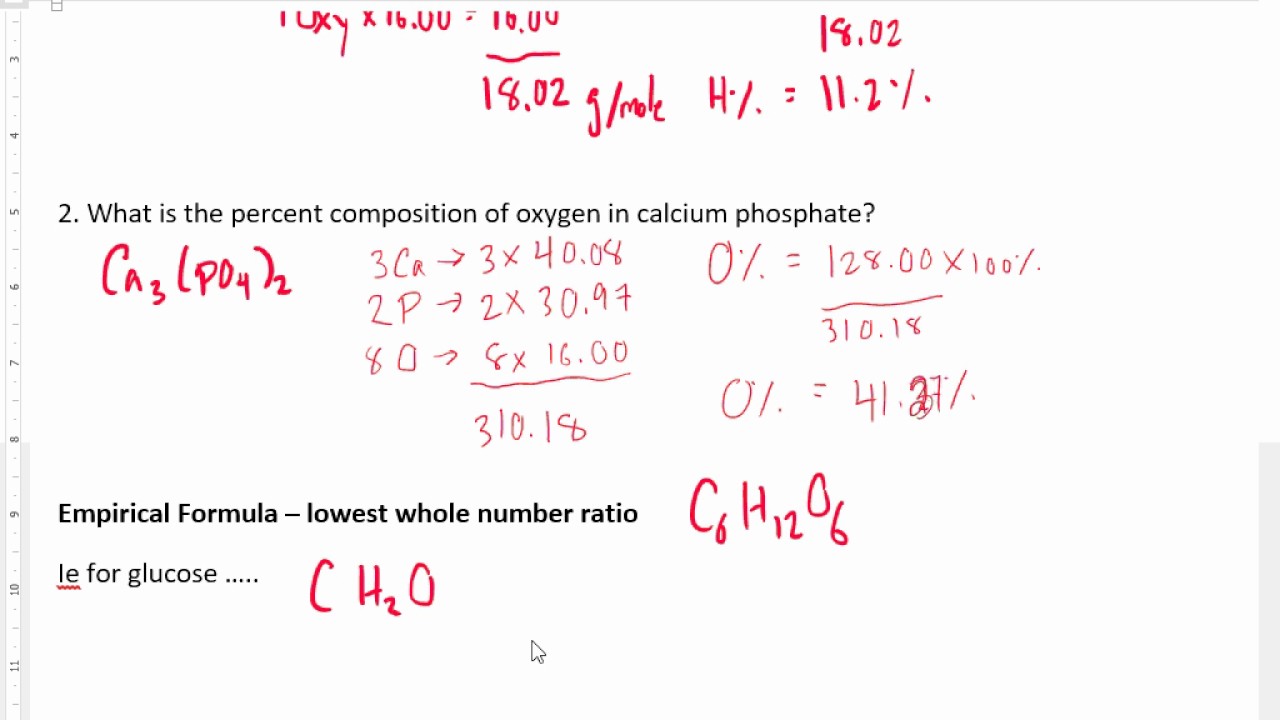 1 Oxy x 16.00 = 16.00
18.02
18.02 g/mole H% = 11.2%.
2. What is the percent composition of oxygen in calcium phosphate?
Ca3(PO4)2
3Ca → 3 x 40.08
2P → 2 x 30.97
8O → 8 x 16.00
310.18
O% = 128.00 x 100%.
310.18
O% = 41.27%.
Empirical Formula – lowest whole number ratio
C6H12O6
Ie for glucose …..
CH2O
3
4
5
6
7
8
9
10
11